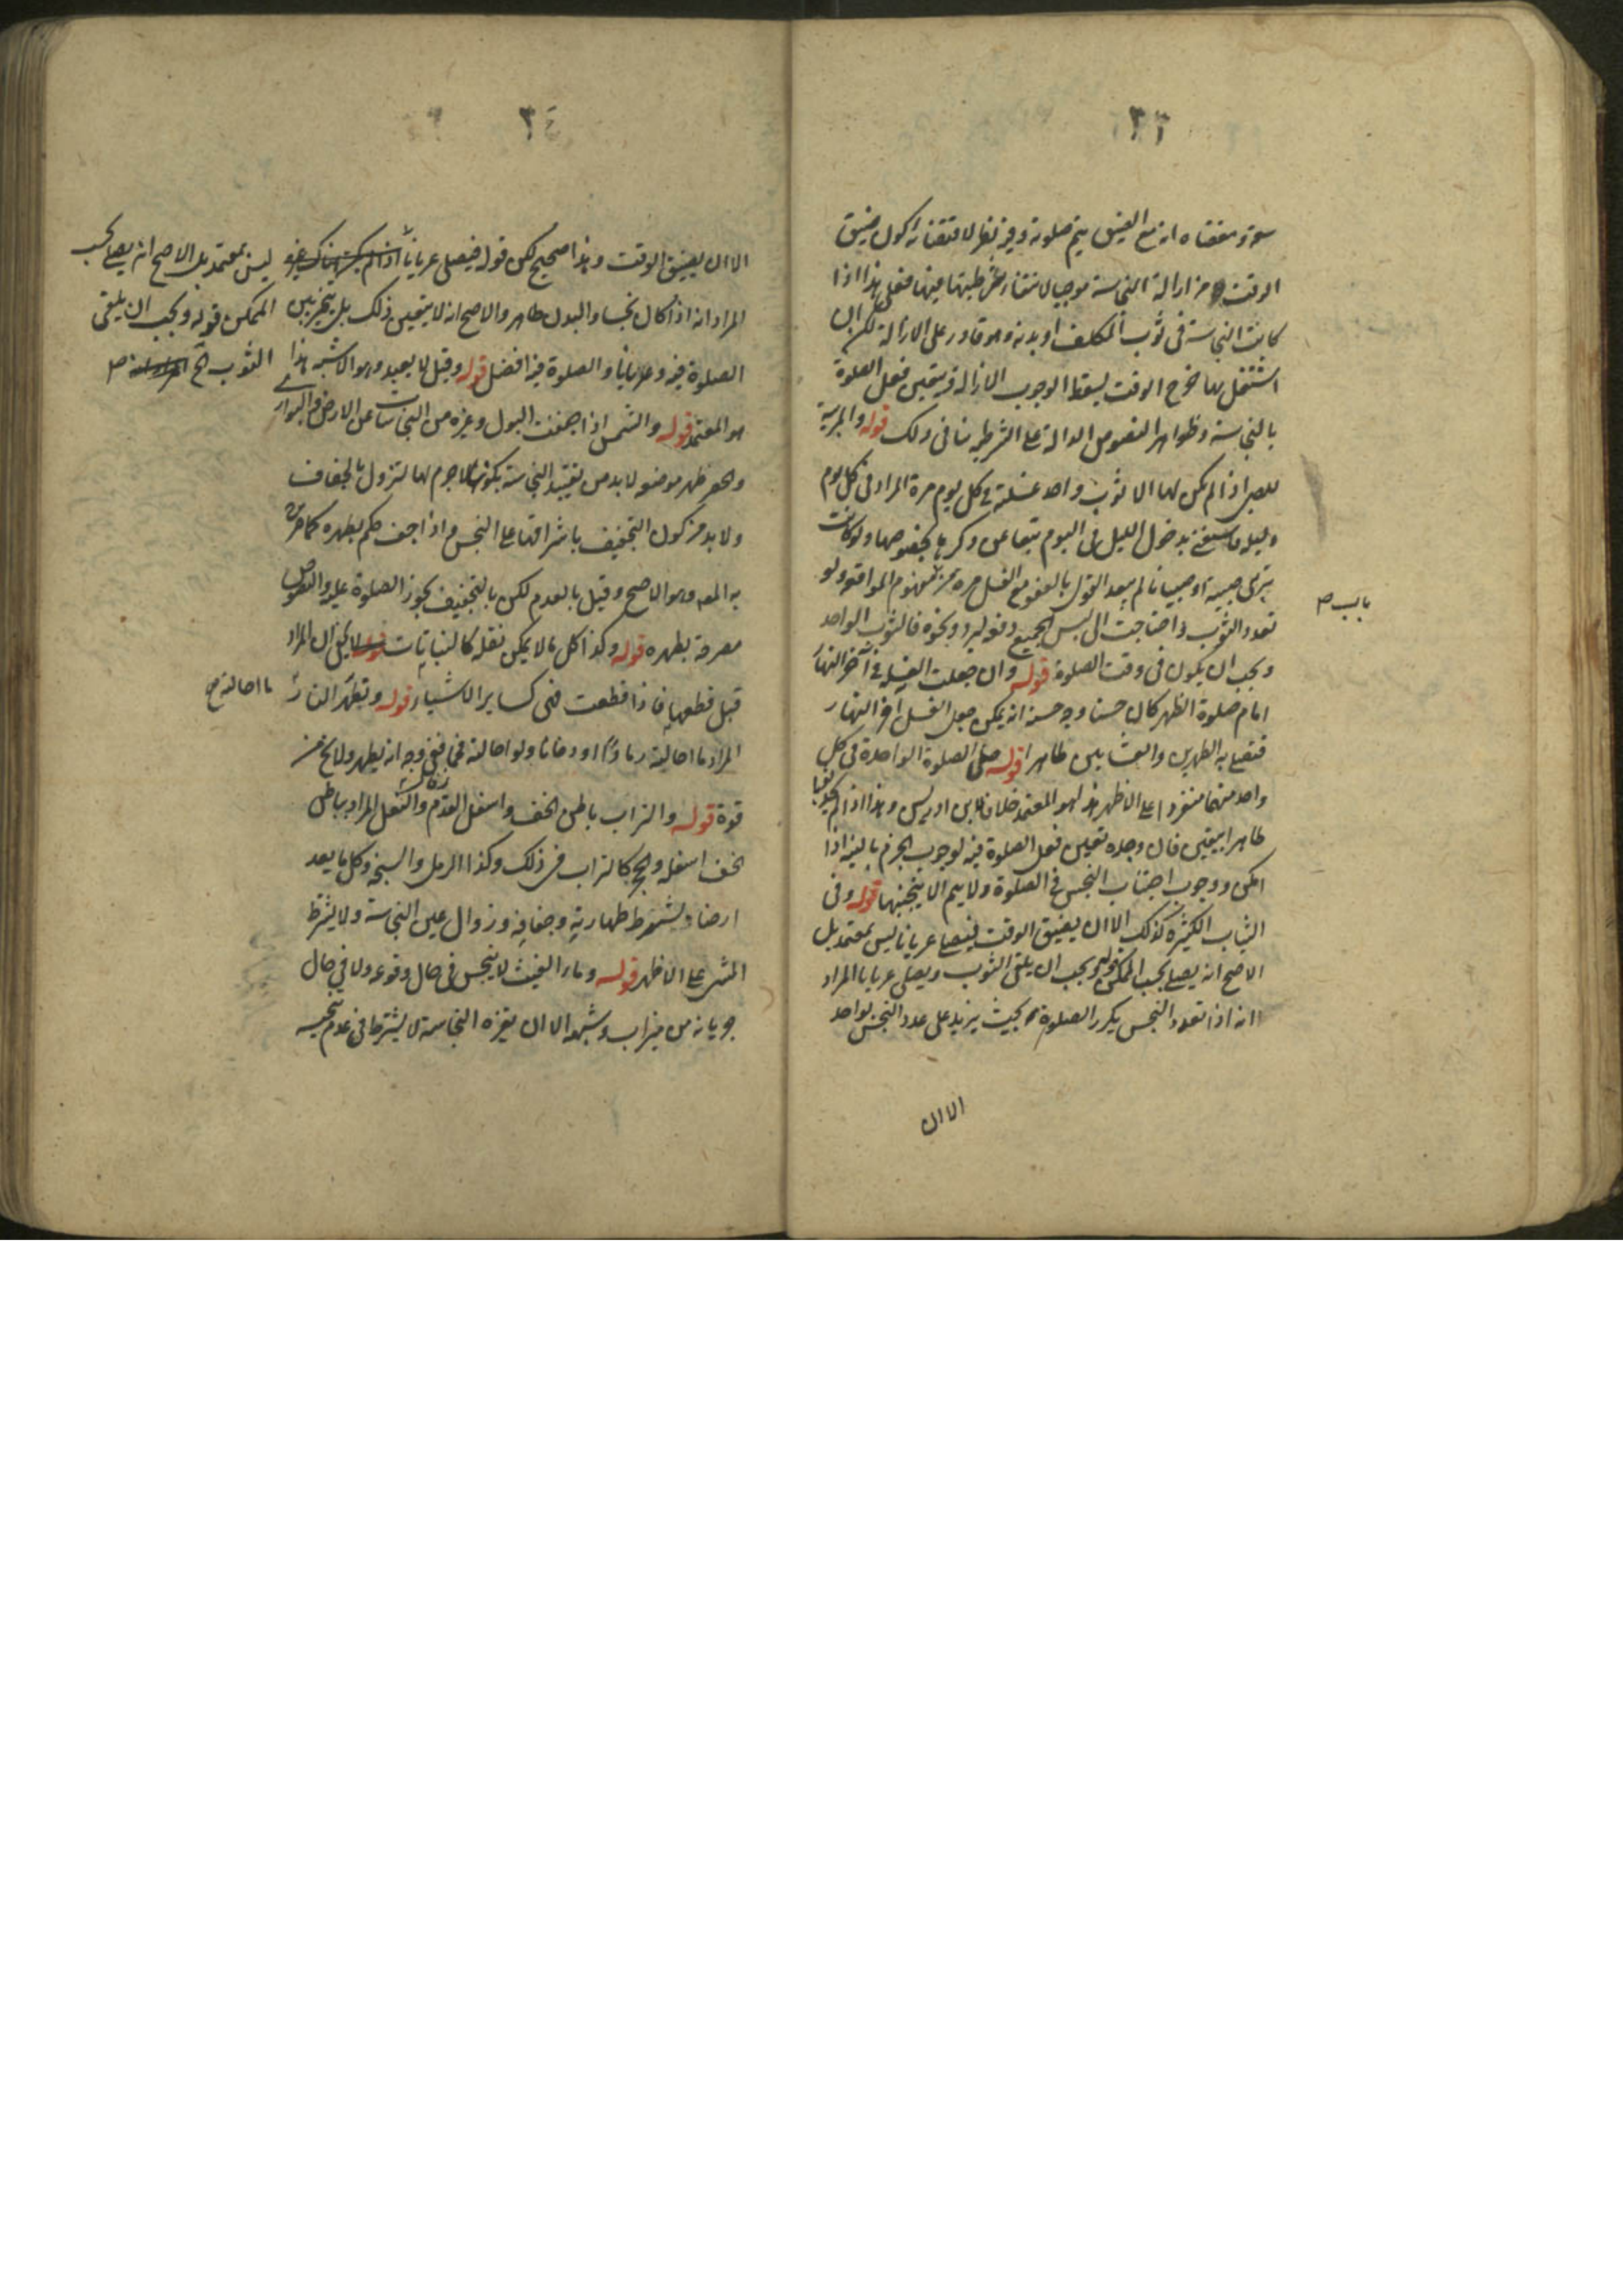 ٢٣
سعته ومقتضاه ان مع الضيق يتم صلوته وفيه نظر لاقتضائه كون ضيق
الوقت من ازالة النجاسة موجبا لانتفاء شرطيتها فيها فعلى هذا اذا
كانت النجاسة فى ثوب المكلف او بدنه وهو قادر على الازالة لكن ان
اشتغل بها خرج الوقت يسقط الوجوب الازالة فيتعين فعل الصلوة
بالنجاسة وظواهر النصوص الدالة على الشرطية ينافى ذلك قوله والمربية
للصبى اذا لم يكن لها الا ثوب واحد غسلته فى كل يوم مرة المراد فى كل يوم
وليلة فاستغنى بدخول الليل فى اليوم تبعا عن ذكرها بخصوصها ولو كانت
تربى صبية او صبيانا لم يبعد القول بالعفو مع الغسل مرة من مفهوم الموافقة ولو
تعدد الثوب واحتاجت الى لبس الجميع دفعة لبرد ونحوه فالثوب الواحد
ويجب ان يكون فى وقت الصلوة قوله وان جعلت الغسلة فى آخر النهار
امام صلوة الظهر كان حسنا وجه حسنه انه يمكن جعل الغسل اخر النهار
فتصلى به الظهرين والعشائين طاهرا قوله صلى الصلوة الواحدة فى كل
واحد منهما منفردا على الاظهر هذا هو المعتمد خلافا لابن ادريس وهذا اذا لم يكن ثوبا
طاهرا بيقين فان وجده تعين فعل الصلوة فيه لوجوب الجزم بالنية اذا
امكن ووجوب اجتناب النجس فى الصلوة ولا يتم الا بتجنبهما قوله وفى
الثياب الكثيرة كذلك الا ان يضيق الوقت فيصلى عريانا ليس بمعتمد بل
الاصح انه يصلى بحسب الممكن قوله ويجب ان يلقى الثوب ويصلى عريانا المراد
انه اذا تعدد النجس يكرر الصلوة بحيث يزيد على عدد النجس بواحد
الا ان
٢٤
الا ان يضيق الوقت وهذا صحيح لكن قوله فيصلى عريانا ليس بمعتمد بل الاصح انه يصلى بحسب
الممكن قوله ويجب ان يلقى
الثوب الخ
المراد انه اذا كان نجسا والبدن طاهر والاصح انه لا يتعين ذلك بل يتخير بين
الصلوة فيه وعريانا والصلوة فيه افضل قوله وقيل لا يعيد وهو الاشبه هذا
هو المعتمد قوله والشمس اذا جففت البول وغيره من النجاسات عن الارض والبوارى
والحصر طهر موضعه لا بد من تقييد النجاسة بكونها لا جرم لها لتزول بالجفاف
ولا بد من كون التجفيف باشراقها على النجس واذا جف حكم بطهره كما صرح
به المصنف وهو الاصح وقيل بالعدم لكن بالتجفيف يجوز الصلوة عليه والنصوص
مصرحة بطهره قوله وكذا كل ما لا يمكن نقله كالنباتات لا يخفى ان المراد
قبل قطعها فاذا قطعت فهى كساير الاشياء قوله وتطهر النار
ما احالته
المراد ما احالته رمادا او دخانا ولو احالته فحما ففى وجه انه يطهر ولا يخ من
قوة قوله والتراب باطن الخف واسفل القدم والنعل المراد بباطن
الخف اسفله والحجر كالتراب فى ذلك وكذا الرمل والسبخ وكل ما يعد
ارضا ويشترط طهارته وجفافه وزوال عين النجاسة ولا يشترط
المشى على الاظهر قوله وماء الغيث لا ينجس فى حال وقوعه ولا فى حال
جريانه من ميزاب وشبهه الا ان يغيره النجاسة لا يشترط فى عدم تنجيسه